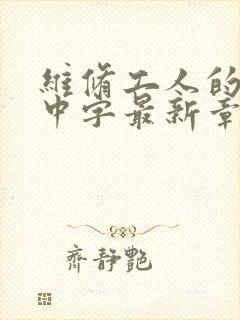 維脩工人的
中字最新章
齊靜艷